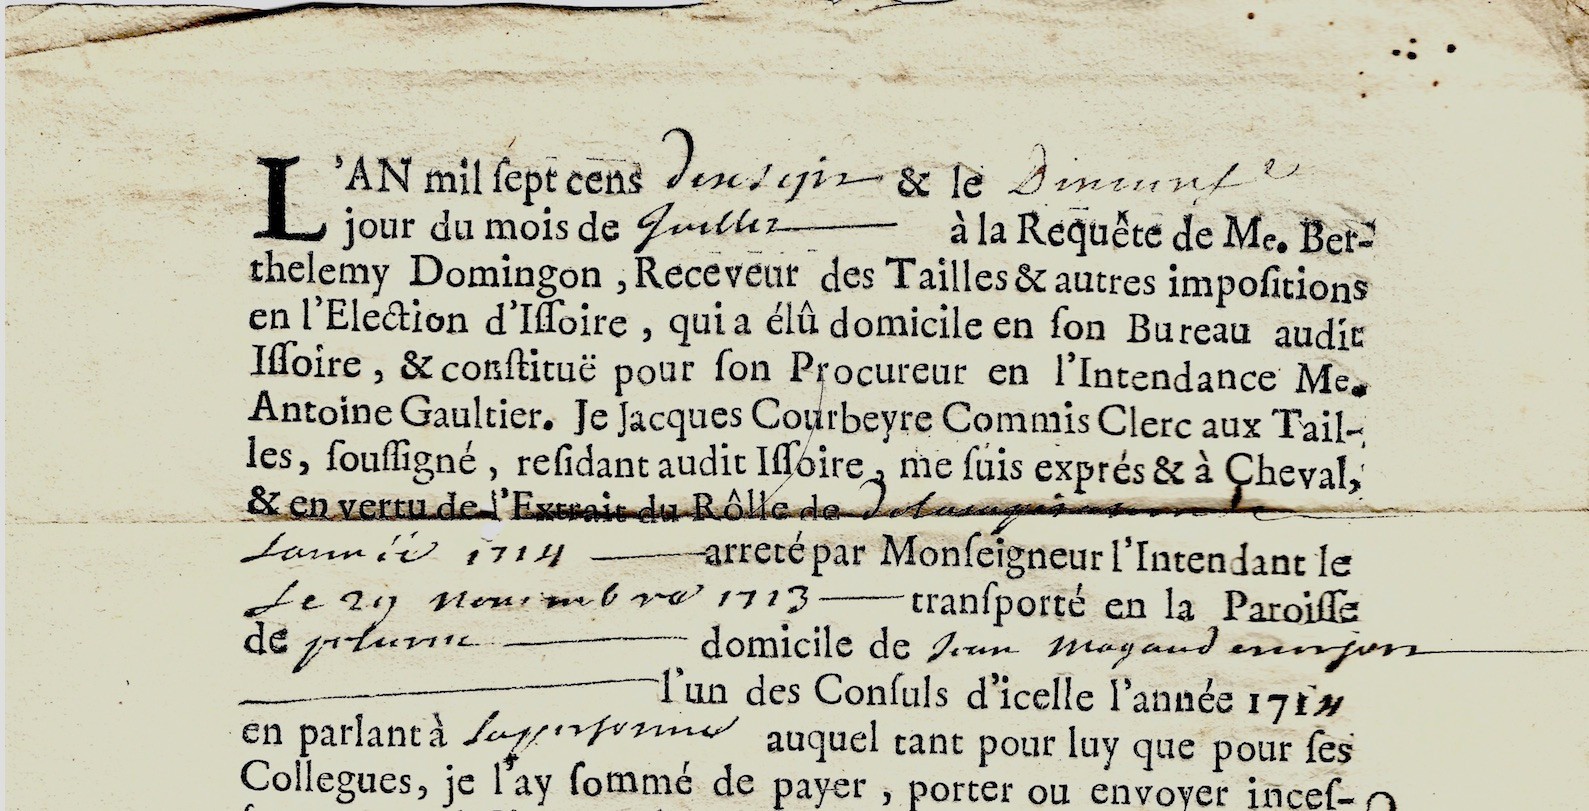 L'AN mil ſept cens & le
jour du mois de Juillet à la Requête de Me. Ber-
thelemy Domingon, Receveur des Tailles & autres impoſitions
en l'Election d'Iſſoire, qui a élû domicile en ſon Bureau audit
Iſſoire, & conſtituë pour ſon Procureur en l'Intendance Me.
Antoine Gaultier. Je Jacques Courbeyre Commis Clerc aux Tail-
les, ſouſſigné, reſidant audit Iſſoire, me ſuis exprés & à Cheval,
& en vertu de l'Extrait du Rôlle de
Lannéé 1714 arreté par Monſeigneur l'Intendant le
Le 29 novembre 1713 tranſporté en la Paroiſſe
de domicile de Jean Magaud
l'un des Conſuls d'icelle l'année 1714
en parlant à Sa personne auquel tant pour luy que pour ſes
Collegues, je l'ay ſommé de payer, porter ou envoyer inceſ-